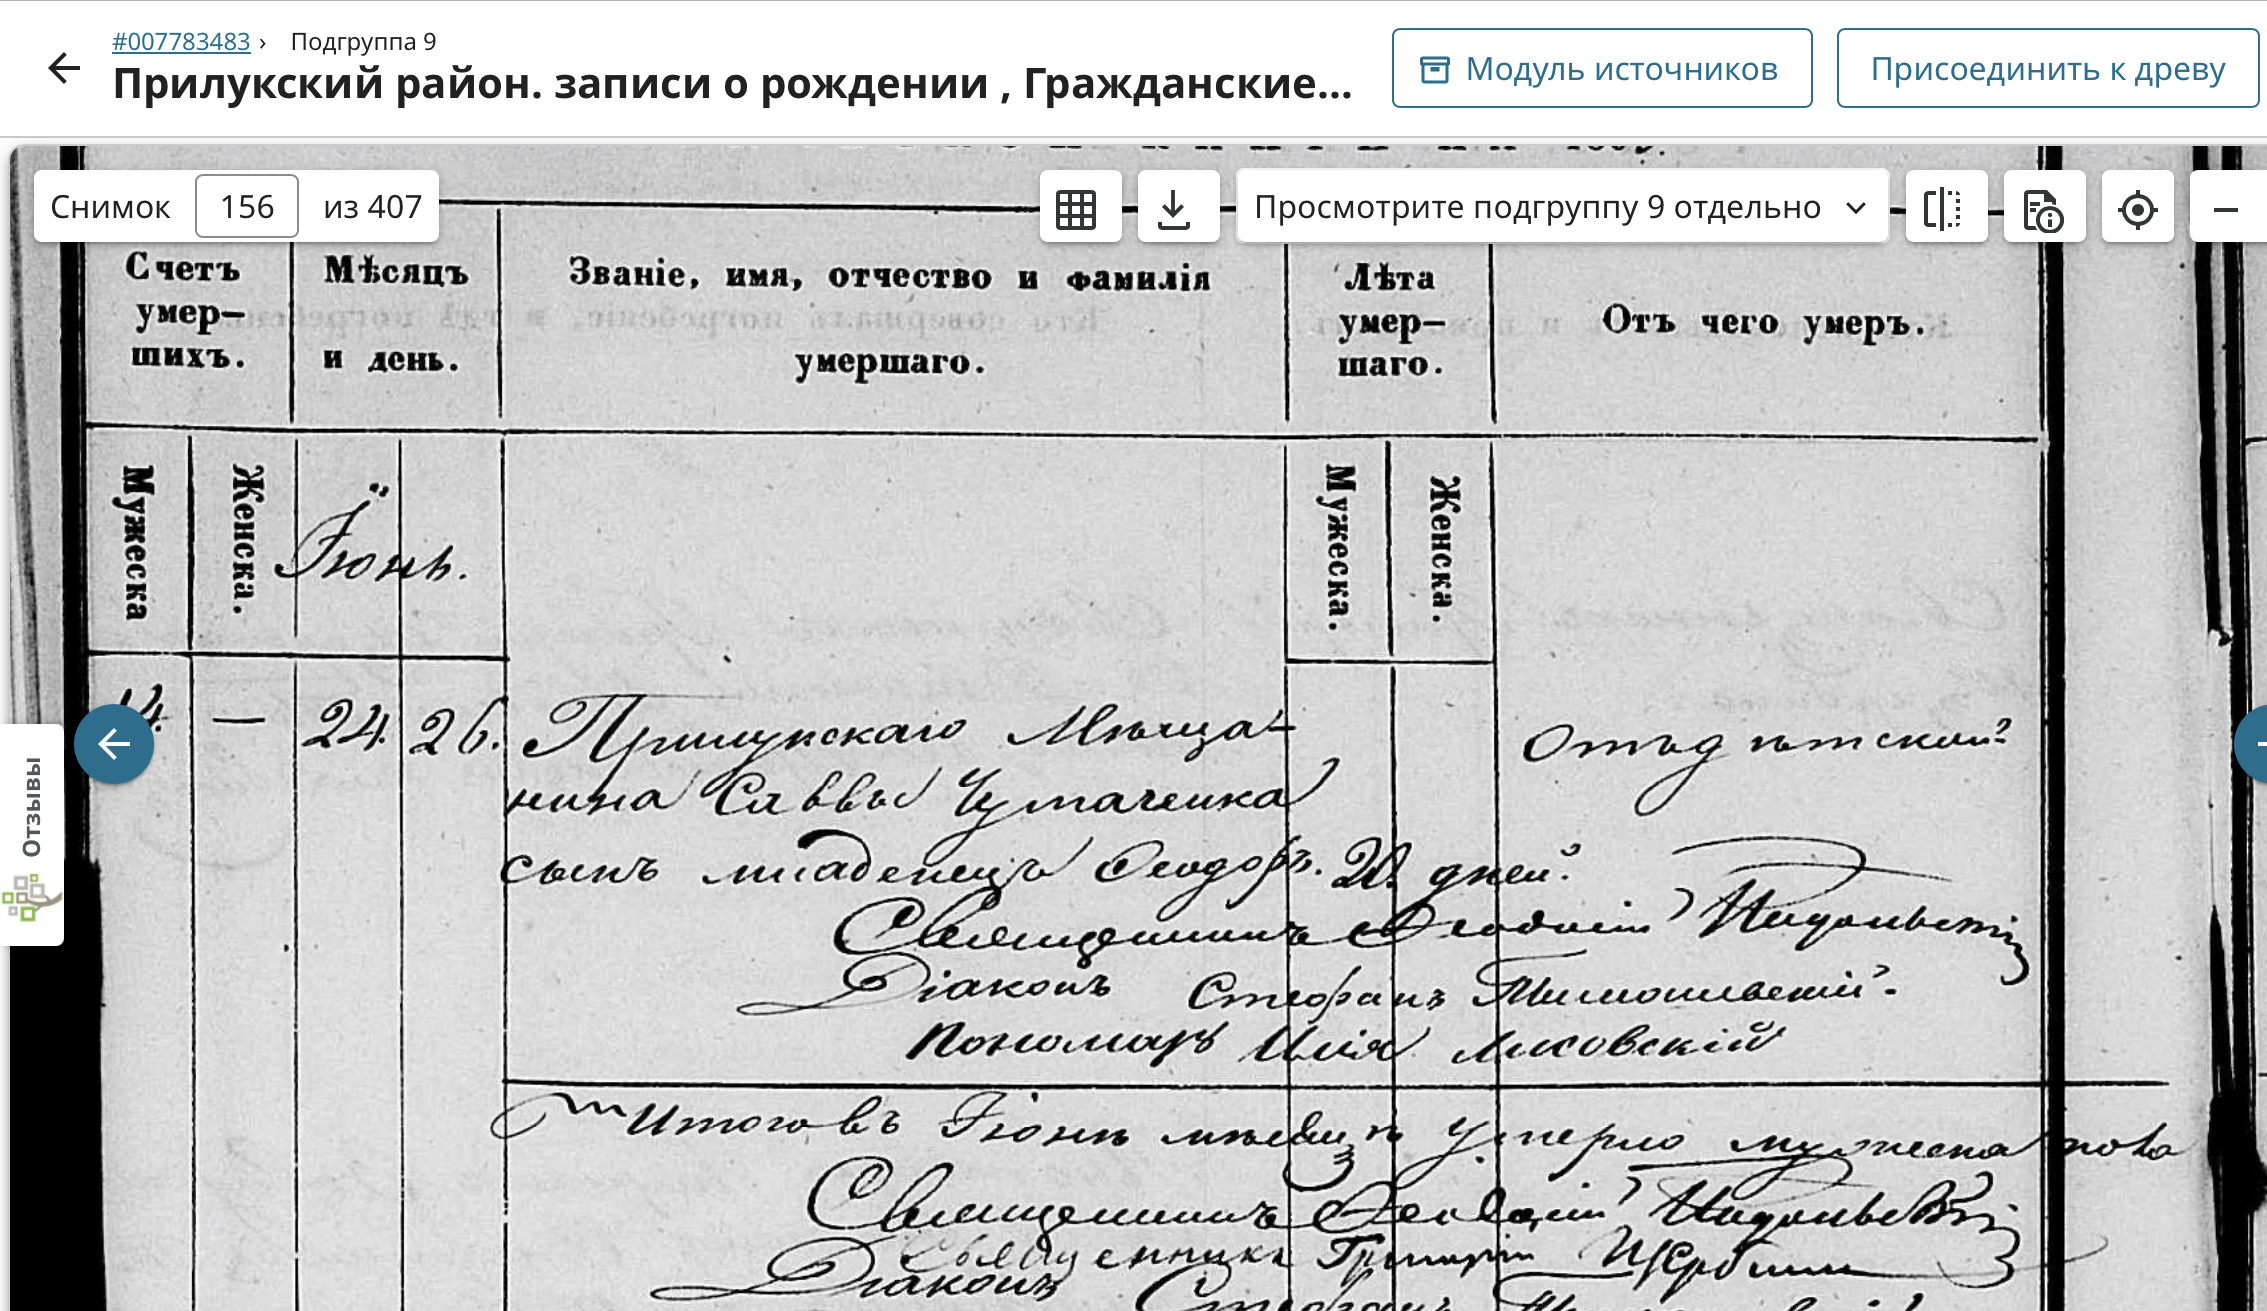 #007783483 › Подгруппа 9
Прилукский район. записи о рождении , Гражданские...
Модуль источников
Присоединить к древу
Снимок 156 из 407
Просмотрите подгруппу 9 отдельно
Счетъ умер–шихъ.
Мѣсяцъ и день.
Званіе, имя, отчество и фамилія умершаго.
Лѣта умер–шаго.
Отъ чего умеръ.
Мужеска
Женска.
Іюнь.
Мужеска.
Женска.
14. — 24. 26. Прилукскаго Мѣща-
нина Саввы Чумаченка
сынъ младенецъ Ѳеодоръ. 20. дней.
Отъ дѣтской
Священникъ Ѳеодосій
Діаконъ Стефанъ
Пономарь Илія Лисовскій
Итого въ Іюнѣ мѣсяцѣ умерло мужеска пола
Священникъ Ѳеодосій
Священникъ Григорій Щербина
Діаконъ Стефанъ
Отзывы